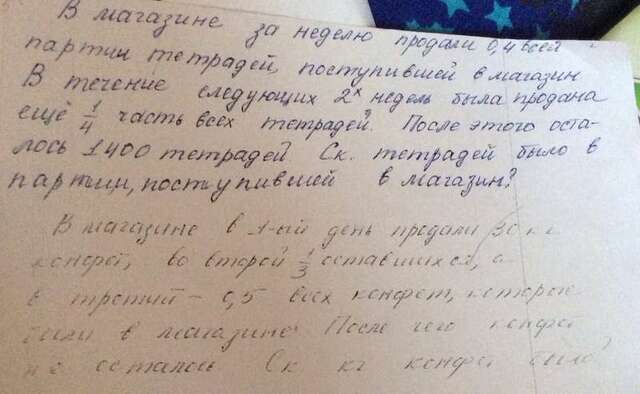 В магазине за неделю продали 0,4 всей
партии тетрадей, поступившей в магазин
В течение следующих 2ˣ недель была продана
ещё 1/4 часть всех тетрадей. После этого оста-
лось 1400 тетрадей. Ск. тетрадей было в
партии, поступившей в магазин?
В магазине в 1-ый день продали 30 кг
конфет, во второй 1/3 оставшихся, а
в третий - 0,5 всех конфет, которые
были в магазине. После чего конфет
не осталось Ск кг конфет было?